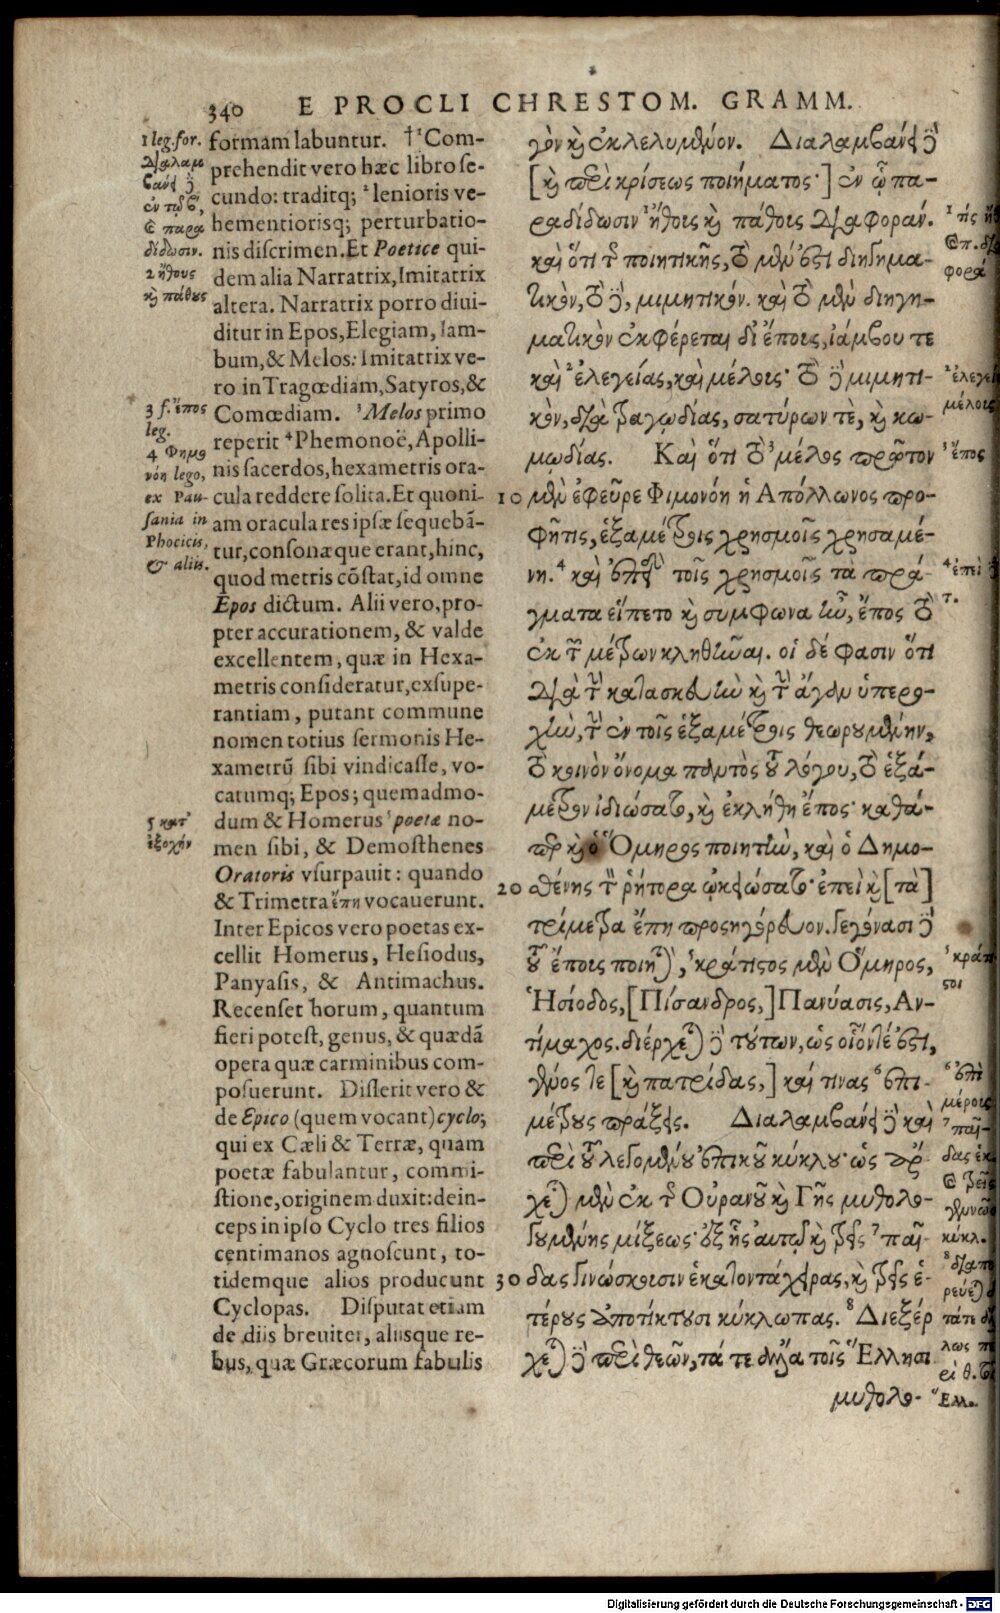 340 E PROCLI CHRESTOM. GRAMM.
1 leg. for.
Διαλαμ
βάνει δὲ
ἐν τῷ β´,
ὃ παρα
δίδωσιν.
2 ἤθους
καὶ πάθους
3 f. ἔπος
leg.
4 Φημο
νόη lego,
ex Pau-
sania in
Phocicis,
& aliis.
5 κατ᾽
ἐξοχήν
formam labuntur. † ¹Com-
prehendit vero hæc libro se-
cundo: traditq; ²lenioris ve-
hementiorisq; perturbatio-
nis discrimen. Et Poetice qui-
dem alia Narratrix, Imitatrix
altera. Narratrix porro diui-
ditur in Epos, Elegiam, Iam-
bum, & Melos: Imitatrix ve-
ro in Tragœdiam, Satyros, &
Comœdiam. ³Melos primo
reperit ⁴Phemonoë, Apolli-
nis sacerdos, hexametris ora-
cula reddere solita. Et quoni-
am oracula res ipsæ sequebā-
tur, consonæque erant, hinc,
quod metris cōstat, id omne
Epos dictum. Alii vero, pro-
pter accurationem, & valde
excellentem, quæ in Hexa-
metris consideratur, exsupe-
rantiam, putant commune
nomen totius sermonis He-
xametrū sibi vindicasse, vo-
catumq; Epos; quemadmo-
dum & Homerus ⁵poetæ no-
men sibi, & Demosthenes
Oratoris vsurpauit: quando
& Trimetra ἔπη vocauerunt.
Inter Epicos vero poetas ex-
cellit Homerus, Hesiodus,
Panyasis, & Antimachus.
Recenset horum, quantum
fieri potest, genus, & quædā
opera quæ carminibus com-
posuerunt. Disserit vero &
de Epico (quem vocant) cyclo;
qui ex Cæli & Terræ, quam
poetæ fabulantur, commi-
stione, originem duxit: dein-
ceps in ipso Cyclo tres filios
centimanos agnoscunt, to-
tidemque alios producunt
Cyclopas. Disputat etiam
de diis breuiter, aliisque re-
bus, quæ Græcorum fabulis
γὸν καὶ ἐκλελυμένον. Διαλαμβάνει δὲ
[καὶ περὶ κρίσεως ποιήματος·] ἐν ᾧ πα-
ραδίδωσιν ¹ἤθοις καὶ πάθοις διαφοράν.
καὶ ὅτι τῆς ποιητικῆς, τὸ μέν ἐστι διηγημα-
τικὸν, τὸ δὲ, μιμητικόν. καὶ τὸ μὲν διηγη-
ματικὸν ἐκφέρεται δι᾽ ἔποις, ἰάμβου τε
καὶ ²ἐλεγείας, καὶ μέλοις· τὸ δὲ μιμητι-
κὸν, διὰ τραγῳδίας, σατύρων τὲ, καὶ κω-
μῳδίας. Καὶ ὅτι τὸ ³μέλος πρῶτον
10 μὲν ἐφεῦρε Φιμονόη ἡ Ἀπόλλωνος προ-
φῆτις, ἑξαμέτροις χρησμοῖς χρησαμέ-
νη. ⁴καὶ ἐπειδὴ τοῖς χρησμοῖς τὰ πρά-
γματα εἵπετο καὶ σύμφωνα ἦν, ἔπος τὸ
ἐκ τῶν μέτρων κληθῆναι. οἱ δέ φασιν ὅτι
διὰ τὴν κατασκευὴν καὶ τὴν ἄγαν ὑπερο-
χὴν, τὴν ἐν τοῖς ἑξαμέτροις θεωρουμένην,
τὸ κοινὸν ὄνομα παντὸς τοῦ λόγου, τὸ ἑξά-
μετρον ἰδιώσατο, καὶ ἐκλήθη ἔπος· καθά-
περ καὶ ὁ Ὅμηρος ποιητὴν, καὶ ὁ Δημο-
20 σθένης τὸν ῥήτορα ᾠκειώσατο· ἐπεὶ καὶ [τὰ]
τρίμετρα ἔπη προσηγόρευον. Γεγόνασι δὲ
τοῦ ἔποις ποιηταὶ, ⁵κράτιστος μὲν Ὅμηρος,
Ἡσίοδος, [Πίσανδρος,] Πανύασις, Ἀν-
τίμαχος. διέρχεται δὲ τούτων, ὡς οἷόν τέ ἐστι,
γένος τε [καὶ πατρίδας,] καί τινας ⁶ἐπι-
μέρους πράξεις. Διαλαμβάνει δὲ καὶ
περὶ τοῦ λεγομένου ἐπικοῦ κύκλου· ὡς ἄρ-
χεται μὲν ἐκ τῆς Οὐρανοῦ καὶ Γῆς μυθολο-
γουμένης μίξεως· ἐξ ἧς αὐτῷ καὶ τρεῖς ⁷παῖ-
30 δας γινώσκοισιν ἑκατοντάχειρας, καὶ τρεῖς ἑ-
τέρους ἀποτίκτουσι κύκλωπας. ⁸Διεξέρ
χεται δὲ περὶ θεῶν, τά τε ἄλλα τοῖς Ἕλλησι
μυθολο-
²ἐλεγεί
μέλοις
³ἔπος
⁴ἐπεὶ
τ.
⁶ἐπὶ
μέροις
⁷παῖ-
κύκλ.
Ἑλλ.
Digitalisierung gefördert durch die Deutsche Forschungsgemeinschaft - DFG